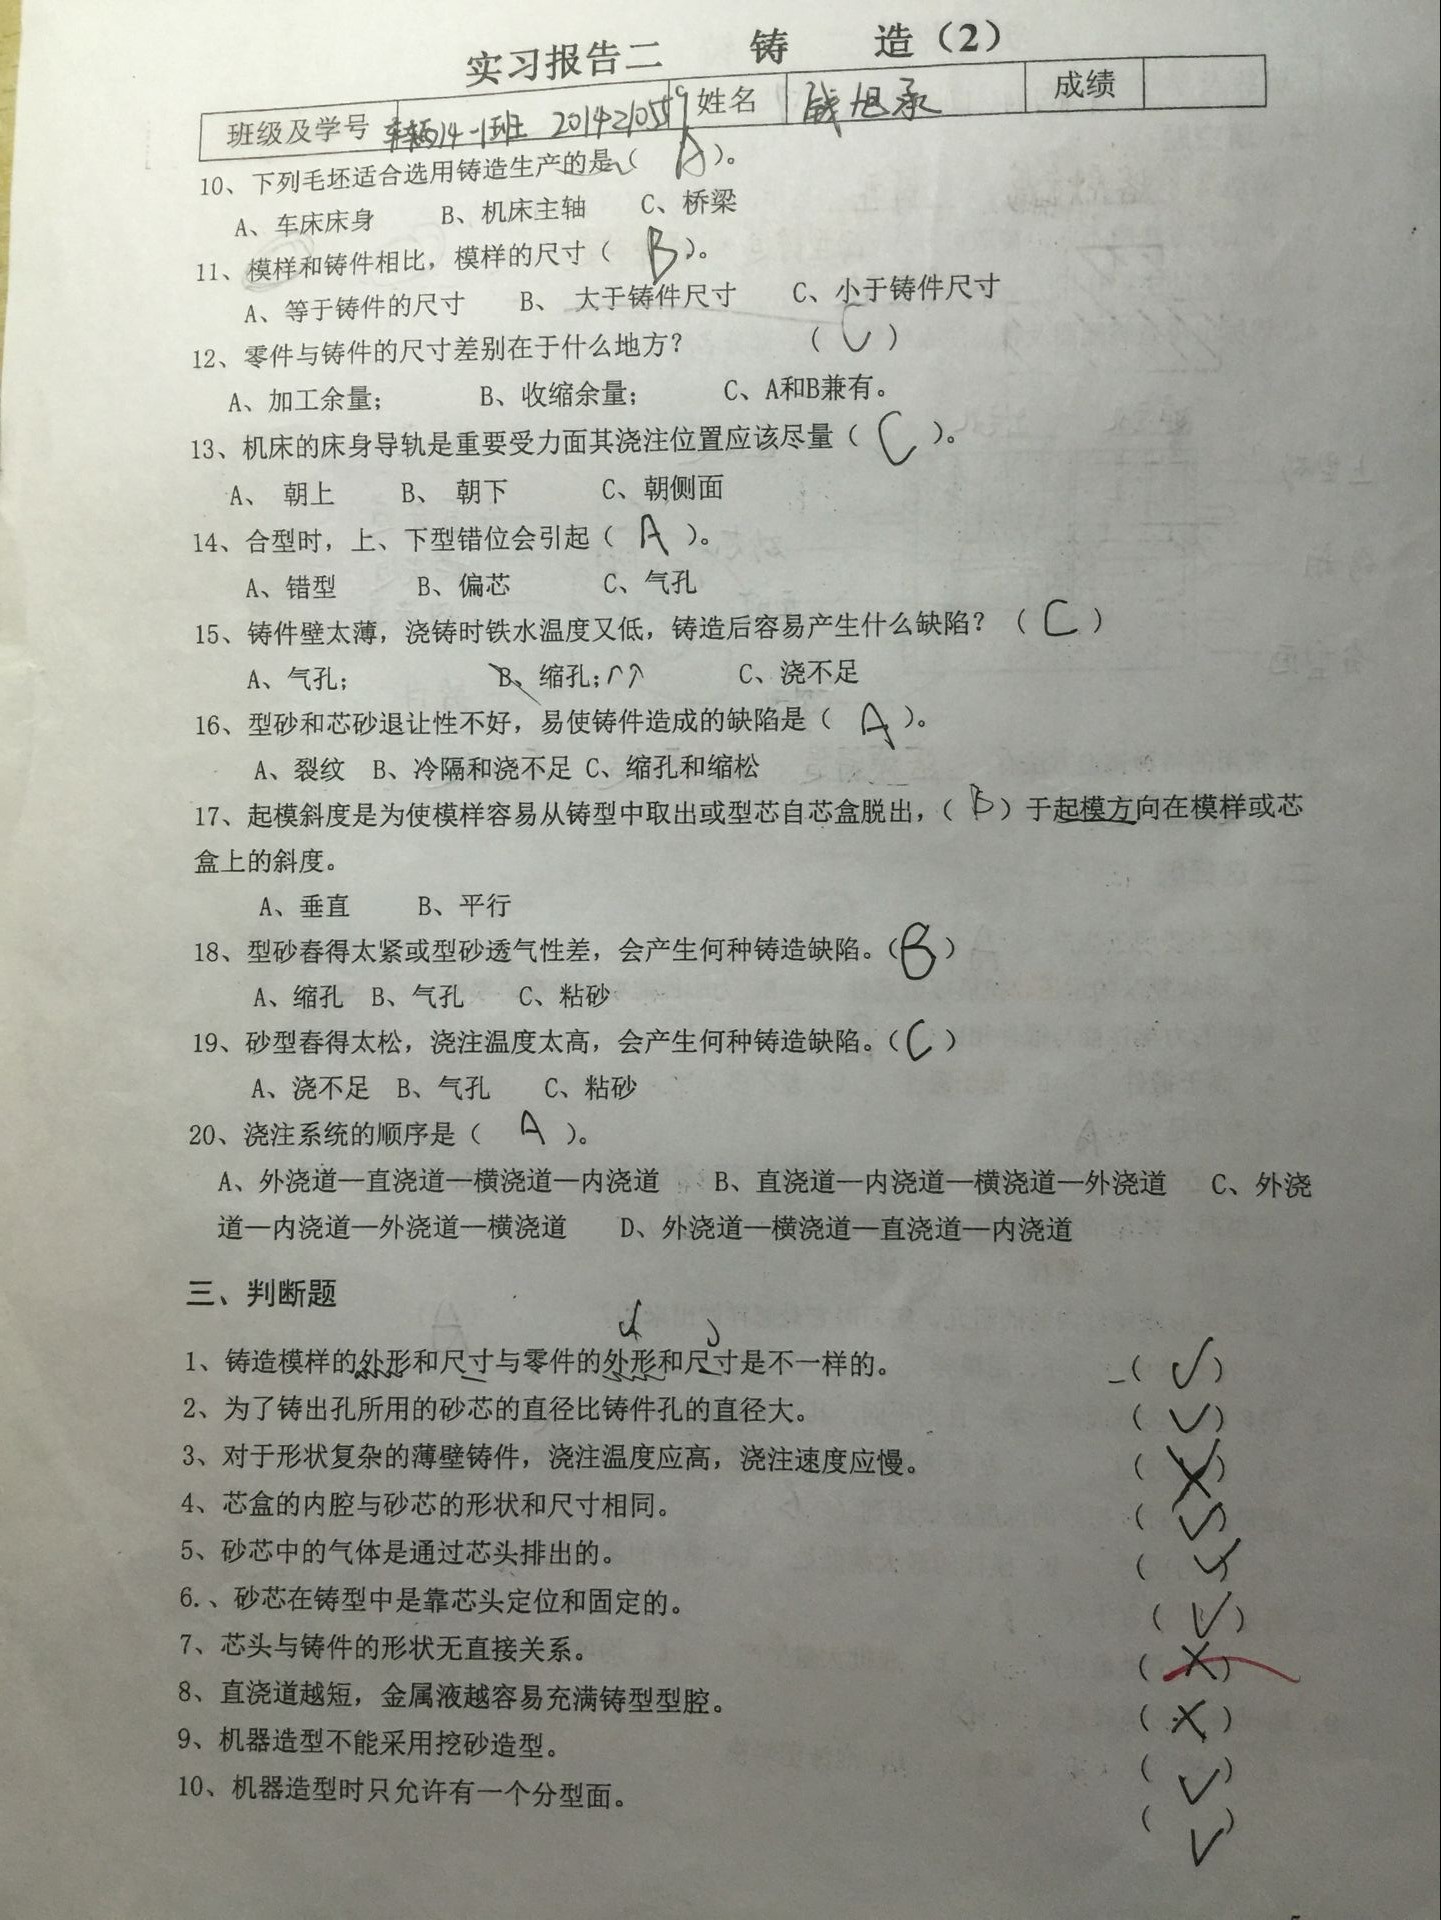 实习报告二 铸 造（2）
班级及学号 车辆14-1班 201421055 姓名 钱旭承 成绩
10、下列毛坯适合选用铸造生产的是（ A ）。
A、车床床身 B、机床主轴 C、桥梁
11、模样和铸件相比，模样的尺寸（ B ）。
A、等于铸件的尺寸 B、 大于铸件尺寸 C、小于铸件尺寸
12、零件与铸件的尺寸差别在于什么地方？ （ C ）
A、加工余量； B、收缩余量； C、A和B兼有。
13、机床的床身导轨是重要受力面其浇注位置应该尽量（ C ）。
A、 朝上 B、 朝下 C、朝侧面
14、合型时，上、下型错位会引起（ A ）。
A、错型 B、偏芯 C、气孔
15、铸件壁太薄，浇铸时铁水温度又低，铸造后容易产生什么缺陷？（ C ）
A、气孔； B、缩孔； C、浇不足
16、型砂和芯砂退让性不好，易使铸件造成的缺陷是（ A ）。
A、裂纹 B、冷隔和浇不足 C、缩孔和缩松
17、起模斜度是为使模样容易从铸型中取出或型芯自芯盒脱出，（ B ）于起模方向在模样或芯
盒上的斜度。
A、垂直 B、平行
18、型砂舂得太紧或型砂透气性差，会产生何种铸造缺陷。（ B ）
A、缩孔 B、气孔 C、粘砂
19、砂型舂得太松，浇注温度太高，会产生何种铸造缺陷。（ C ）
A、浇不足 B、气孔 C、粘砂
20、浇注系统的顺序是（ A ）。
A、外浇道—直浇道—横浇道—内浇道 B、直浇道—内浇道—横浇道—外浇道 C、外浇
道—内浇道—外浇道—横浇道 D、外浇道—横浇道—直浇道—内浇道
三、判断题
1、铸造模样的外形和尺寸与零件的外形和尺寸是不一样的。 （ ✓ ）
2、为了铸出孔所用的砂芯的直径比铸件孔的直径大。 （ ✓ ）
3、对于形状复杂的薄壁铸件，浇注温度应高，浇注速度应慢。 （ × ）
4、芯盒的内腔与砂芯的形状和尺寸相同。 （ ✓ ）
5、砂芯中的气体是通过芯头排出的。 （ ✓ ）
6.、砂芯在铸型中是靠芯头定位和固定的。 （ ✓ ）
7、芯头与铸件的形状无直接关系。 （ × ）
8、直浇道越短，金属液越容易充满铸型型腔。 （ × ）
9、机器造型不能采用挖砂造型。 （ ✓ ）
10、机器造型时只允许有一个分型面。 （ ✓ ）